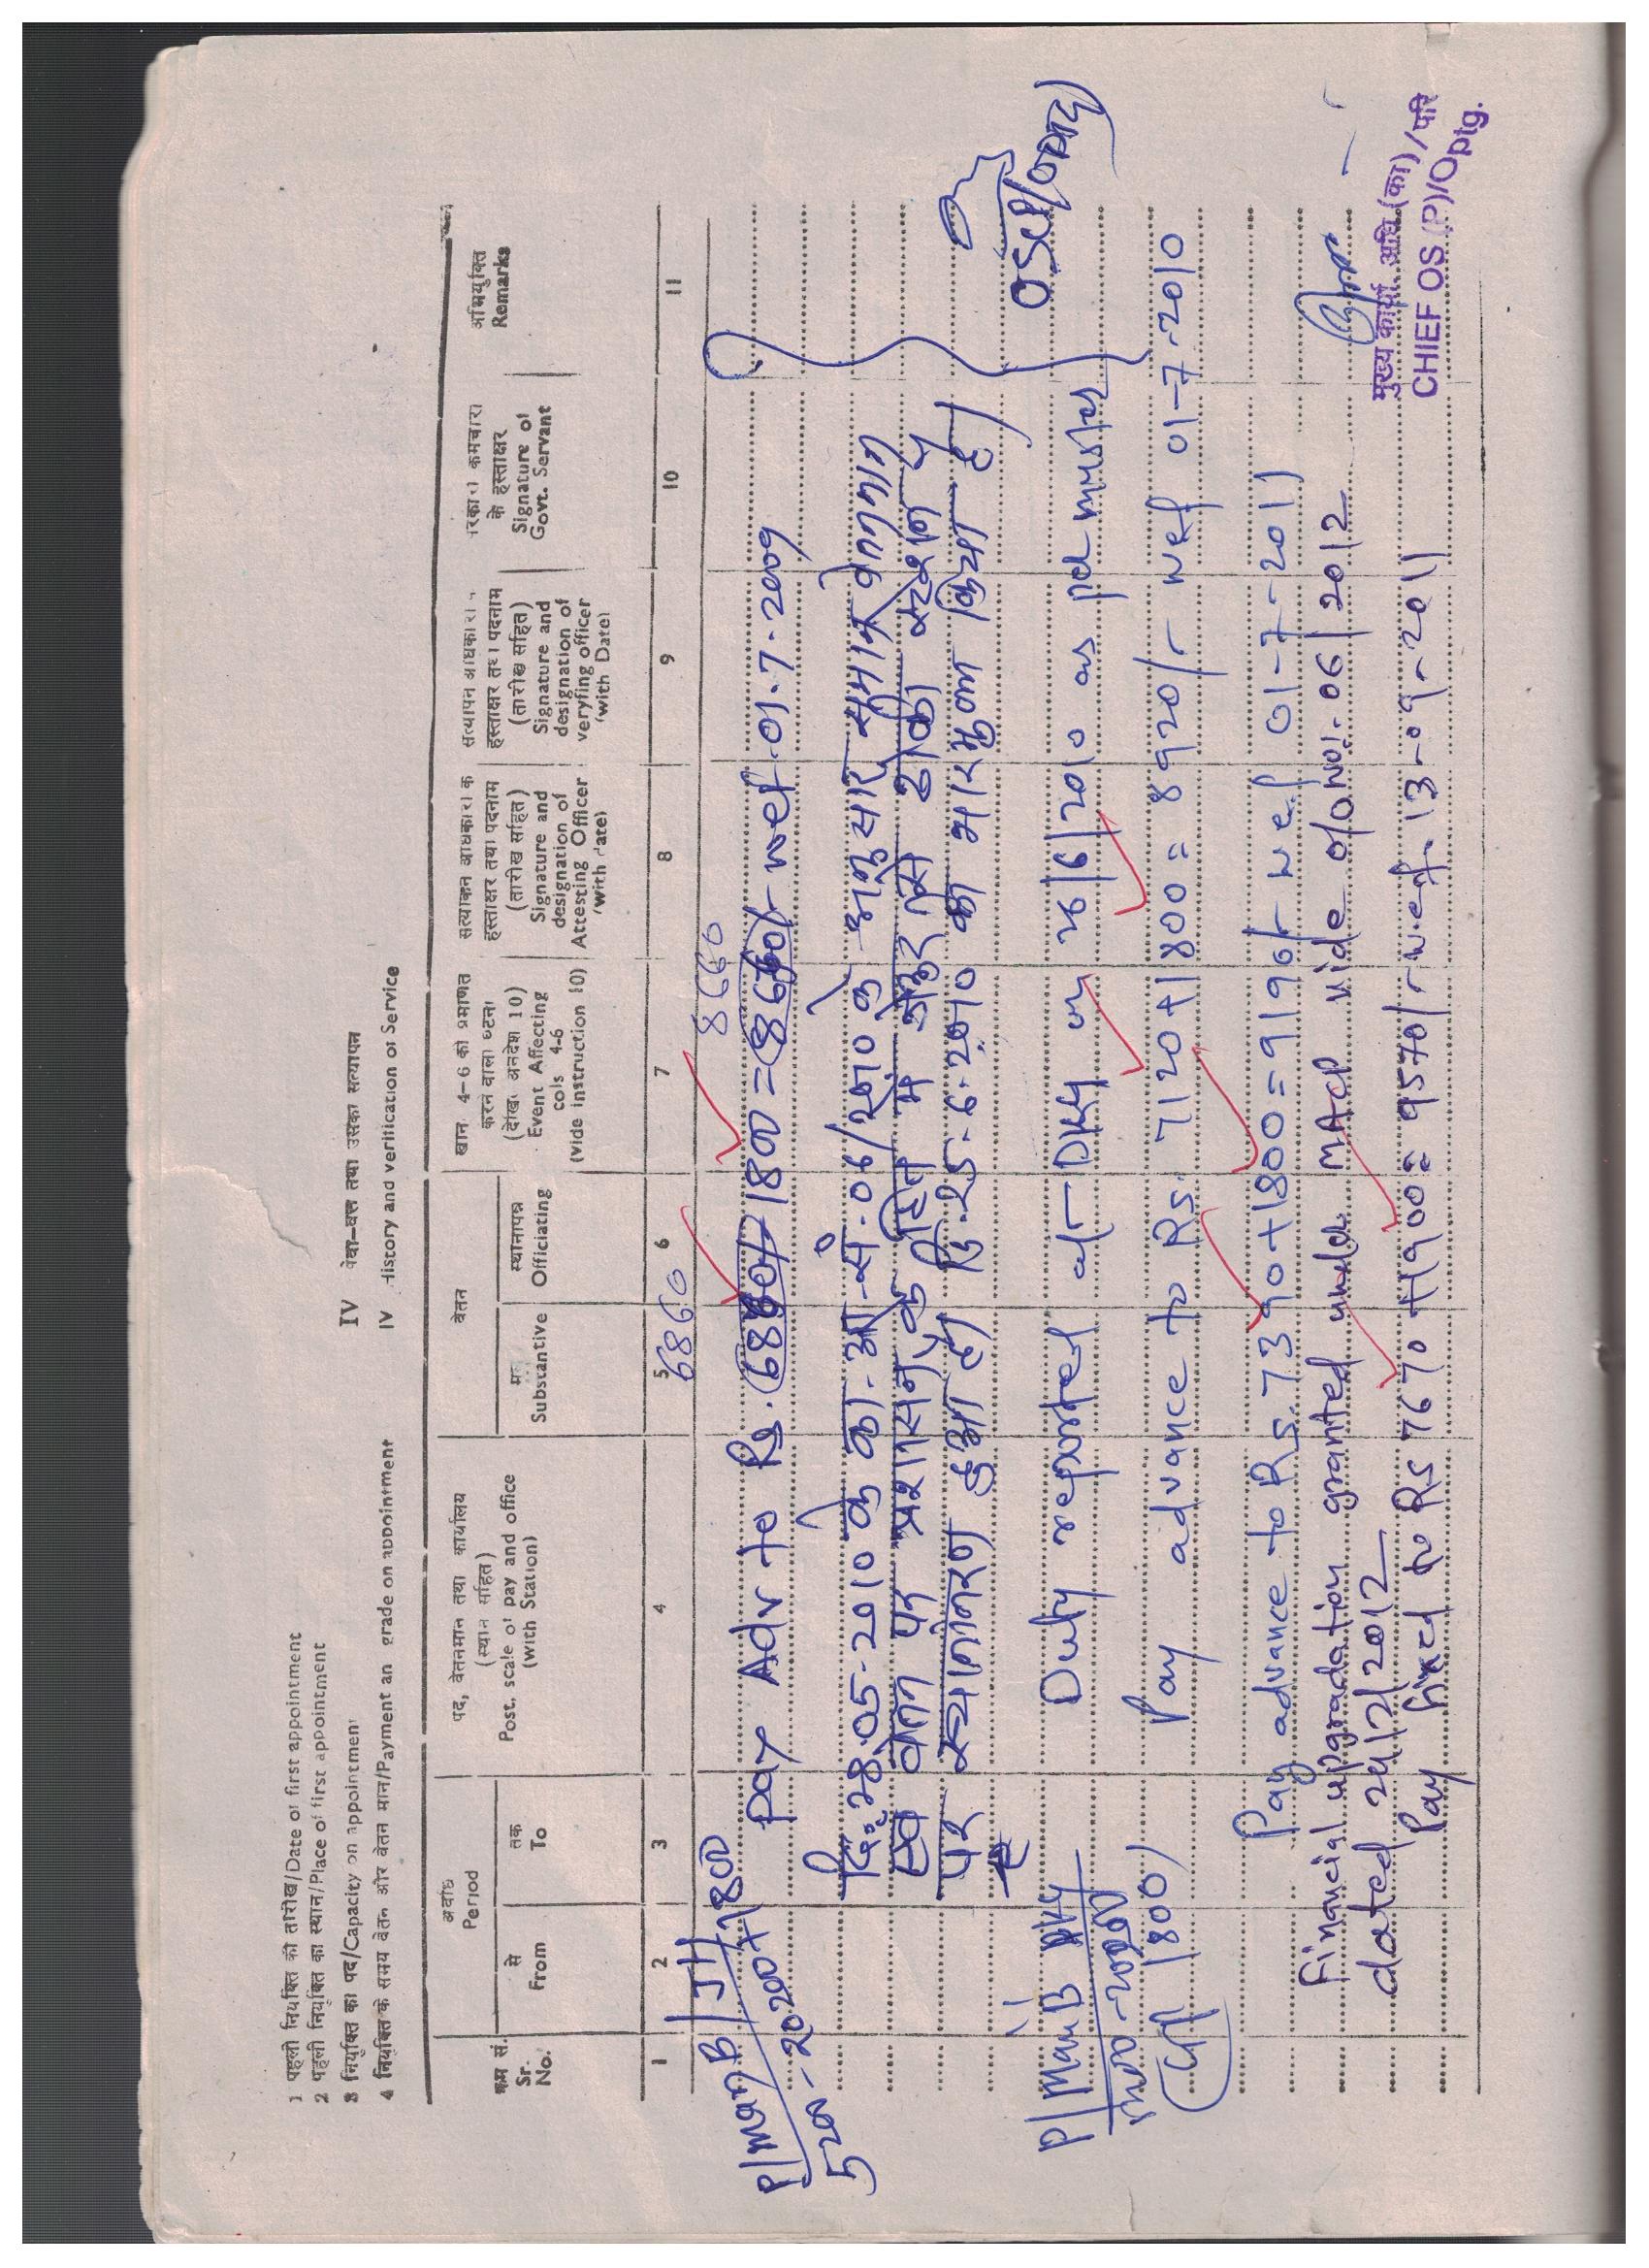 IV
IV History and verification of Service
1 पहली नियुक्ति की तारीख/Date of first appointment
2 पहली नियुक्ति का स्थान/Place of first appointment
3 नियुक्ति का पद/Capacity on appointment
4 नियुक्ति के समय वेतन और वेतन मान/Payment an grade on appointment
क्रम सं.
Sr.
No.
अवधि
Period
से
From
तक
To
पद, वेतनमान तथा कार्यालय
(स्थान सहित)
Post, scale of pay and office
(with Station)
वेतन
Substantive
स्थानापन्न
Officiating
खान 4-6 को प्रमाणित
करने वाली घटना
(देखिए अनदेश 10)
Event Affecting
cols 4-6
(vide instruction 10)
हस्ताक्षर तथा पदनाम
(तारीख सहित)
Signature and
designation of
Attesting Officer
(with date)
हस्ताक्षर तथा पदनाम
(तारीख सहित)
Signature and
designation of
veryfing officer
(with Date)
के हस्ताक्षर
Signature of
Govt. Servant
अभियुक्ति
Remarks
1 2 3 4 5 6 7 8 9 10 11
6860 8660
P/man B/JH
5200-20200+1800
Pay Adv to Rs. 6860/- 1800=8660/- wef 01.7.2009
दि. 28.05-2010 के का.आ.सं.06/2010 के अनुसार समान वेतनमान
एवं वेतन पर प्रशासन के हित में
पर स्थानांतरण हुआ दि.25.6.2010 को भारमुक्त किया है।
P/Man B
5200-20200
GP 1800/
Duty reported at-DKY on 26/6/2010 as
Pay advance to Rs. 7120+1800=8920/- wef 01-7-2010
Pay advance to Rs. 7390+1800=9190/- wef 01-7-2011
Financial upgradation granted under MACP vide o/o No. 06/2012
dated 24/2/2012
Pay fixed to Rs 7670+1900=9570/- w.e.f. 13-09-2011
मुख्य कार्या. अधि.(का)/परि
CHIEF OS (P)/Optg.